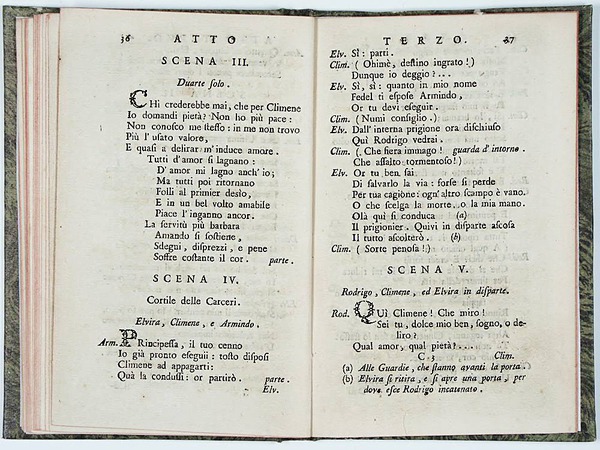 36 ATTO
SCENA III.
Duarte solo.
CHi crederebbe mai, che per Climene
Io domandi pietà? Non ho più pace:
Non conosco me stesso: in me non trovo
Più l'usato valore,
E quasi a delirar m'induce amore.
Tutti d'amor si lagnano:
D'amor mi lagno anch'io;
Ma tutti poi ritornano
Folli al primier desio,
E in un bel volto amabile
Piace l'inganno ancor.
La servitù più barbara
Amando si sostiene,
Sdegni, disprezzi, e pene
Soffre costante il cor. parte.
SCENA IV.
Cortile delle Carceri.
Elvira, Climene, e Armindo.
Arm. PRincipessa, il tuo cenno
Io già pronto eseguii: tosto disposi
Climene ad appagarti:
Quà la condussi: or partirò. parte.
Elv.
TERZO. 37
Elv. Sì: parti.
Clim. (Ohimè, destino ingrato!)
Dunque io deggio?...
Elv. Sì, sì: quanto in mio nome
Fedel ti espose Armindo,
Or tu devi eseguir.
Clim. (Numi consiglio.)
Elv. Dall'interna prigione ora dischiuso
Quì Rodrigo vedrai.
Clim. (Che fiera immago! guarda d'intorno.
Che assalto tormentoso!)
Elv. Or tu ben sai
Di salvarlo la via: forse si perde
Per tua cagione: ogn'altro scampo è vano.
O che scelga la morte, o la mia mano.
Olà quì si conduca (a)
Il prigionier. Quivi in disparte ascosa
Il tutto ascolterò. (b)
Clim. (Sorte penosa!)
SCENA V.
Rodrigo, Climene, ed Elvira in disparte.
Rod. QUì Climene! Che miro!
Sei tu, dolce mio ben, sogno, o de-
liro?
Qual amor, qual pietà?....
C 3 Clim.
(a) Alle Guardie, che stanno avanti la porta.
(b) Elvira si ritira, e si apre una porta, per
dove esce Rodrigo incatenato.